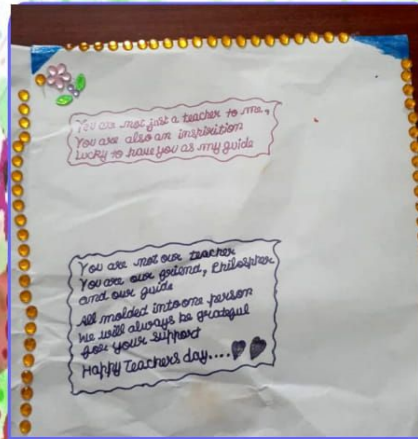 You are not just a teacher to me,
You are also an inspirition
Lucky to have you as my guide
You are not our teacher
You are our griend, Philospher
and our guide
All molded into one person
We will always be grateful
for your support
Happy Teachers day....